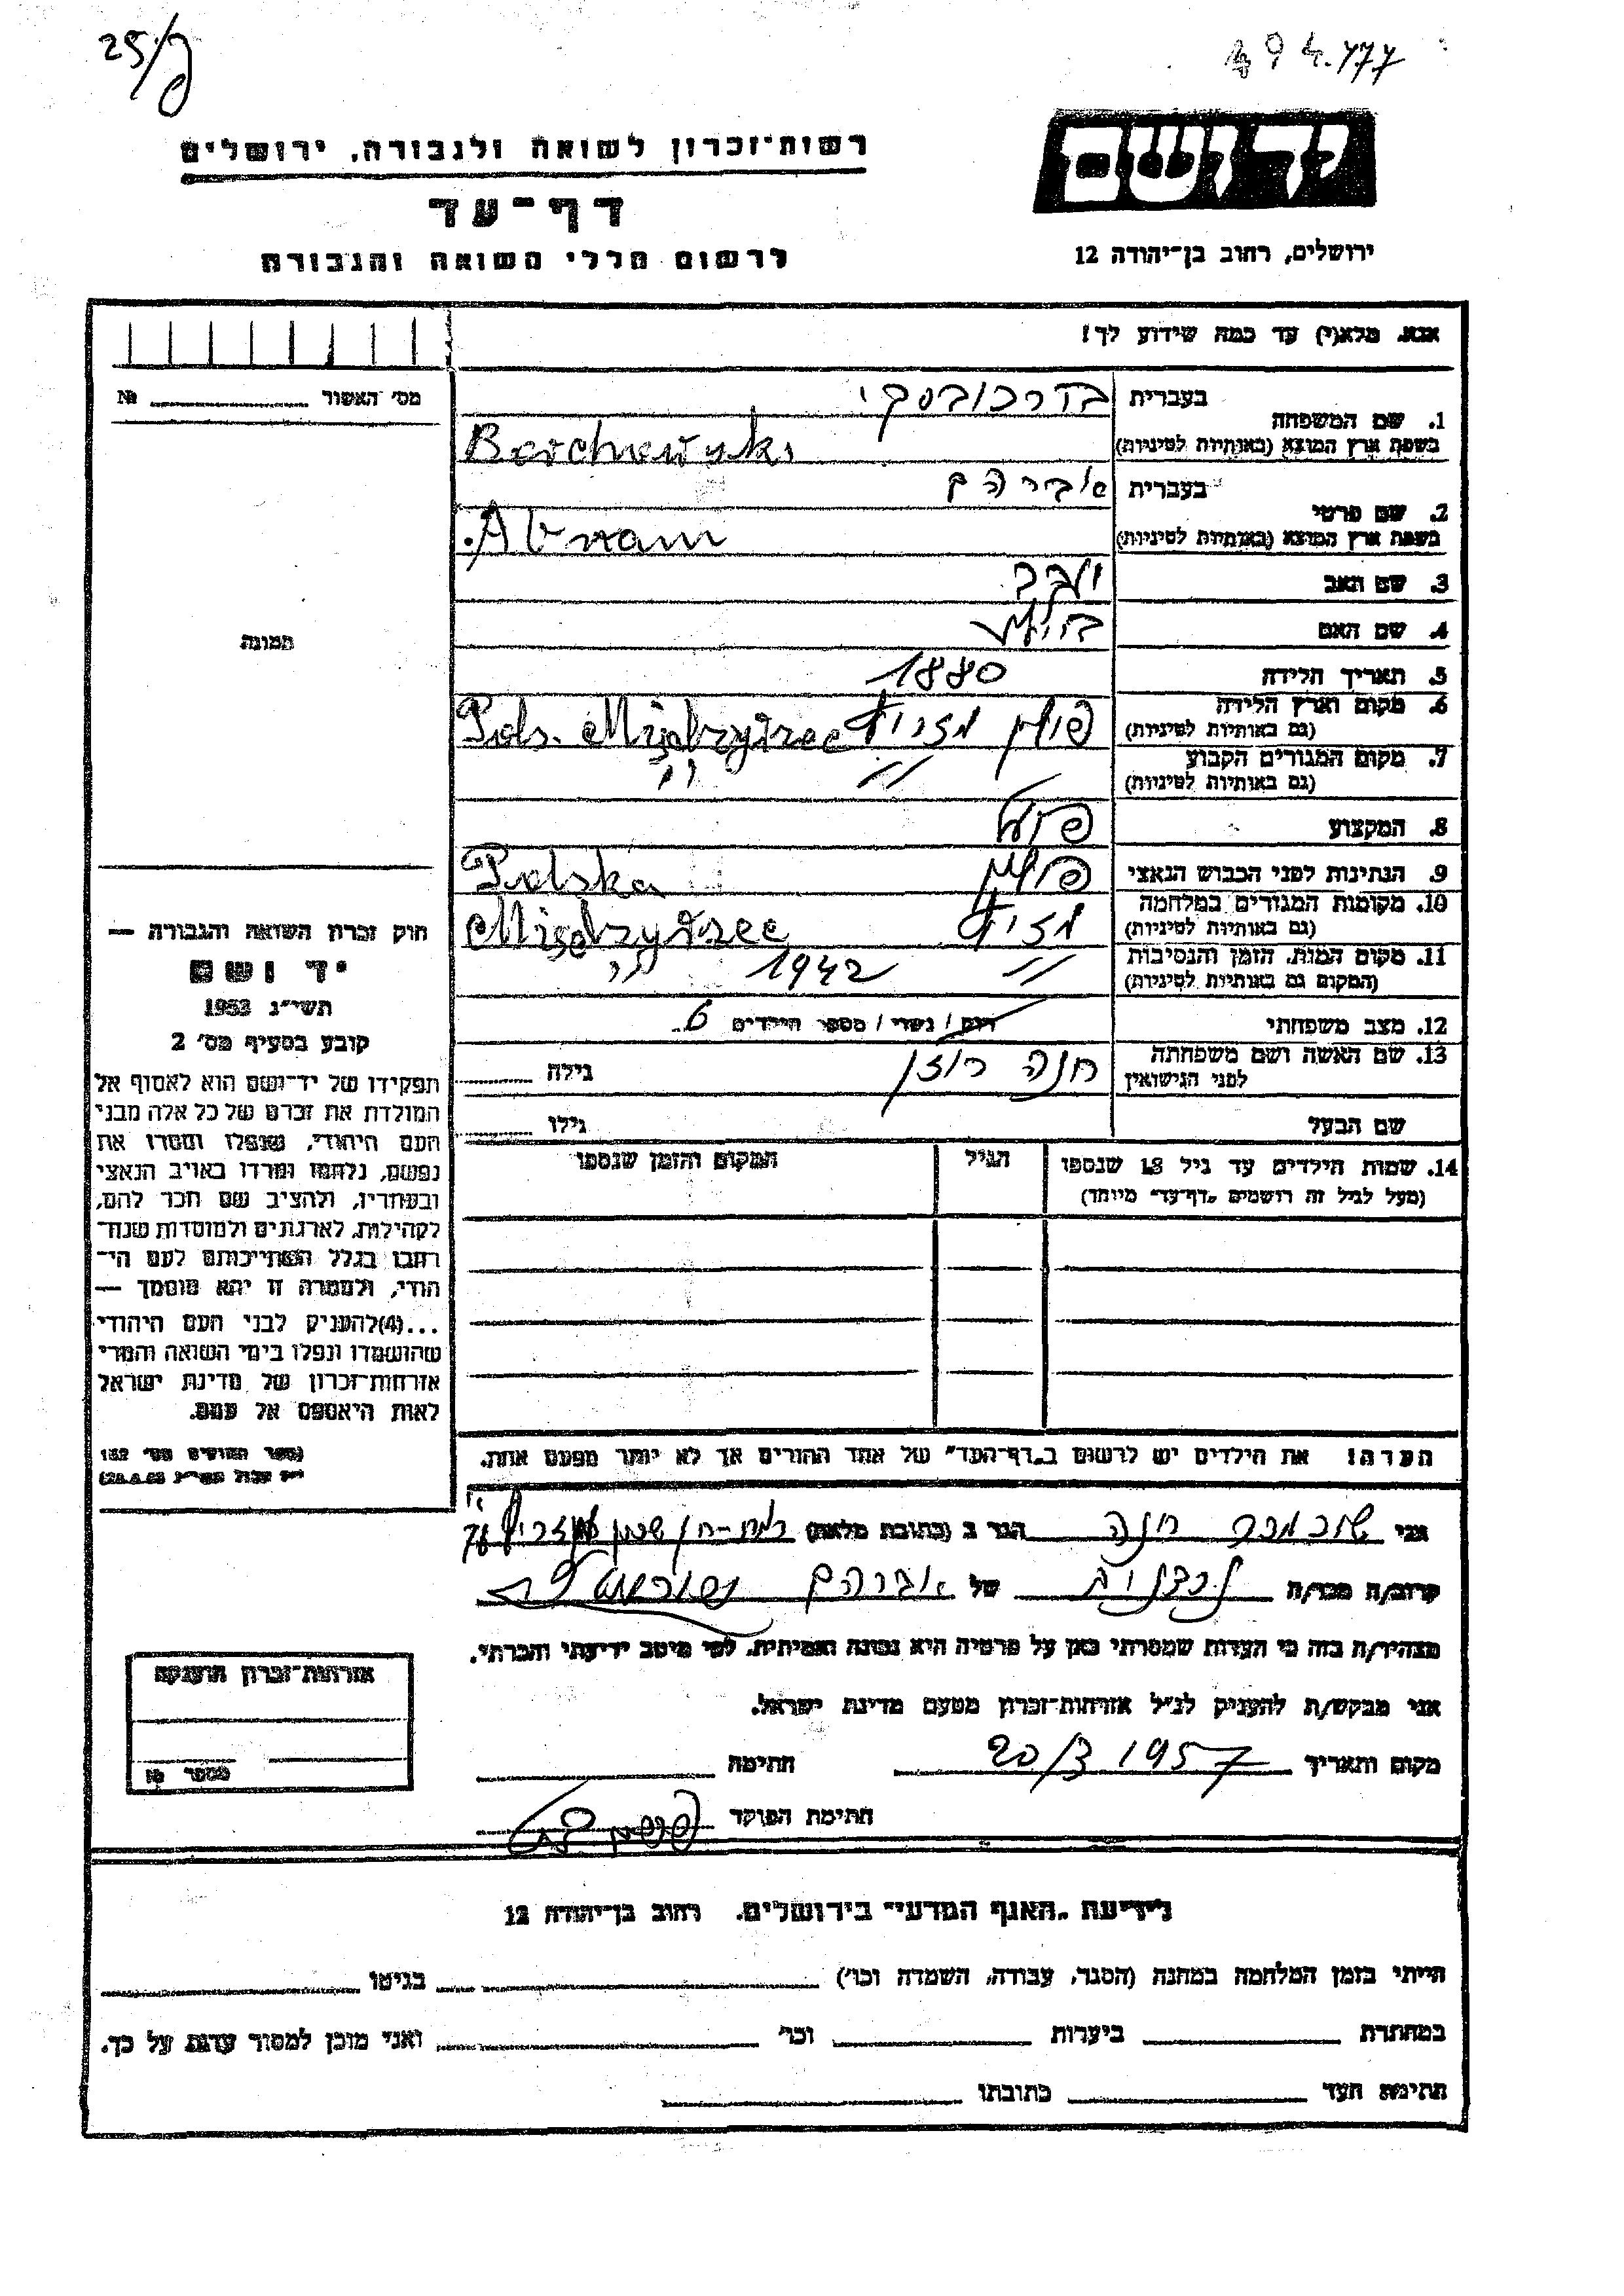 25/
494.177
יד ושם
ירושלים, רחוב בן־יהודה 12
רשות־זכרון לשואה ולגבורה, ירושלים
דף־עד
לרשום חללי השואה והגבורה
אנא, מלא(י) עד כמה שידוע לך!
מס' האשור № 
תמונה
1. שם המשפחה
בעברית
בשפת ארץ המוצא (באותיות לטיניות)
2. שם פרטי
בעברית אברהם
בשפת ארץ המוצא (באותיות לטיניות) Abram
3. שם האב
4. שם האם
5. תאריך הלידה 1880
6. מקום וארץ הלידה
(גם באותיות לטיניות) פולין Pols. Międzyrzec
7. מקום המגורים הקבוע
(גם באותיות לטיניות) // //
8. המקצוע
9. הנתינות לפני הכבוש הנאצי פולין Polska
10. מקומות המגורים במלחמה
(גם באותיות לטיניות) Międzyrzec
11. מקום המות, הזמן והנסיבות
(המקום גם באותיות לטיניות) // 1942 //
12. מצב משפחתי רווק / נשוי / מספר הילדים 6
13. שם האשה ושם משפחתה
לפני הנישואין חנה רוזן גילה
שם הבעל גילו
14. שמות הילדים עד גיל 18 שנספו
(מעל לגיל זה רושמים „דף־עד" מיוחד)
הגיל
המקום והזמן שנספו
הערה! את הילדים יש לרשום ב„דף־העד" של אחד ההורים אך לא יותר מפעם אחת.
חוק זכרון השואה והגבורה —
יד ושם
תשי"ג 1953
קובע בסעיף מס' 2
תפקידו של יד־ושם הוא לאסוף אל
המולדת את זכרם של כל אלה מבני
העם היהודי, שנפלו ומסרו את
נפשם, נלחמו ומרדו באויב הנאצי
ובעוזריו, ולהציב שם וזכר להם,
לקהילות, לארגונים ולמוסדות שנח־
רבו בגלל השתייכותם לעם הי־
הודי, ולמטרה זו יהא מוסמך —
...(4) להעניק לבני העם היהודי
שהושמדו ונפלו בימי השואה והמרי
אזרחות־זכרון של מדינת ישראל
לאות היאספם אל עמם.
(ספר החוקים מס' 132
אני חנה הגר ב (כתובת מלאה) רמת-חן
קרוב/ה מכר/ה של אברהם
מצהיר/ה בזה כי העדות שמסרתי כאן על פרטיה היא נכונה ואמיתית, לפי מיטב ידיעתי והכרתי.
אני מבקש/ת להעניק לנ"ל אזרחות־זכרון מטעם מדינת ישראל.
מקום ותאריך 20/3 1957 חתימה
חתימת הפוקד
אזרחות־זכרון הוענקה
מספר №
לידיעת „האגף המדעי" בירושלים, רחוב בן־יהודה 12
הייתי בזמן המלחמה במחנה (הסגר, עבודה, השמדה וכו') בגיטו
במחתרת ביערות וכו' ואני מוכן למסור עדות על כך.
חתימת העד כתובתו